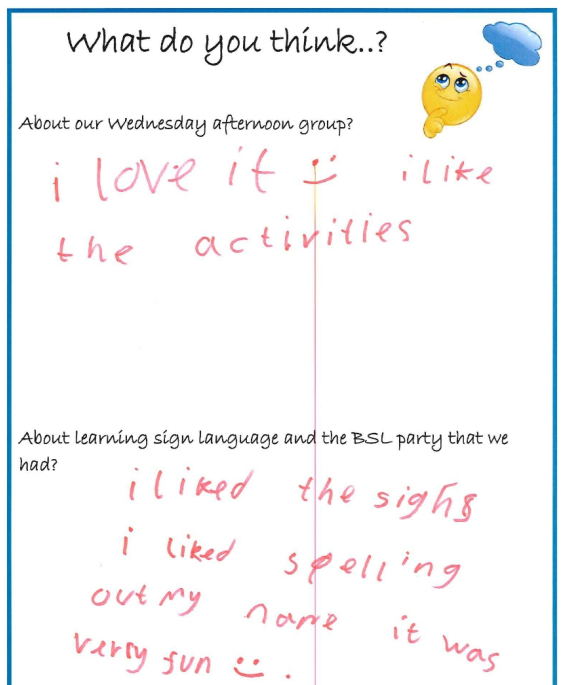 What do you think..?
About our Wednesday afternoon group?
i love it :) i like
the activities
About learning sign language and the BSL party that we
had?
i liked the sighs
i liked spelling
out my name it was
verry fun :).